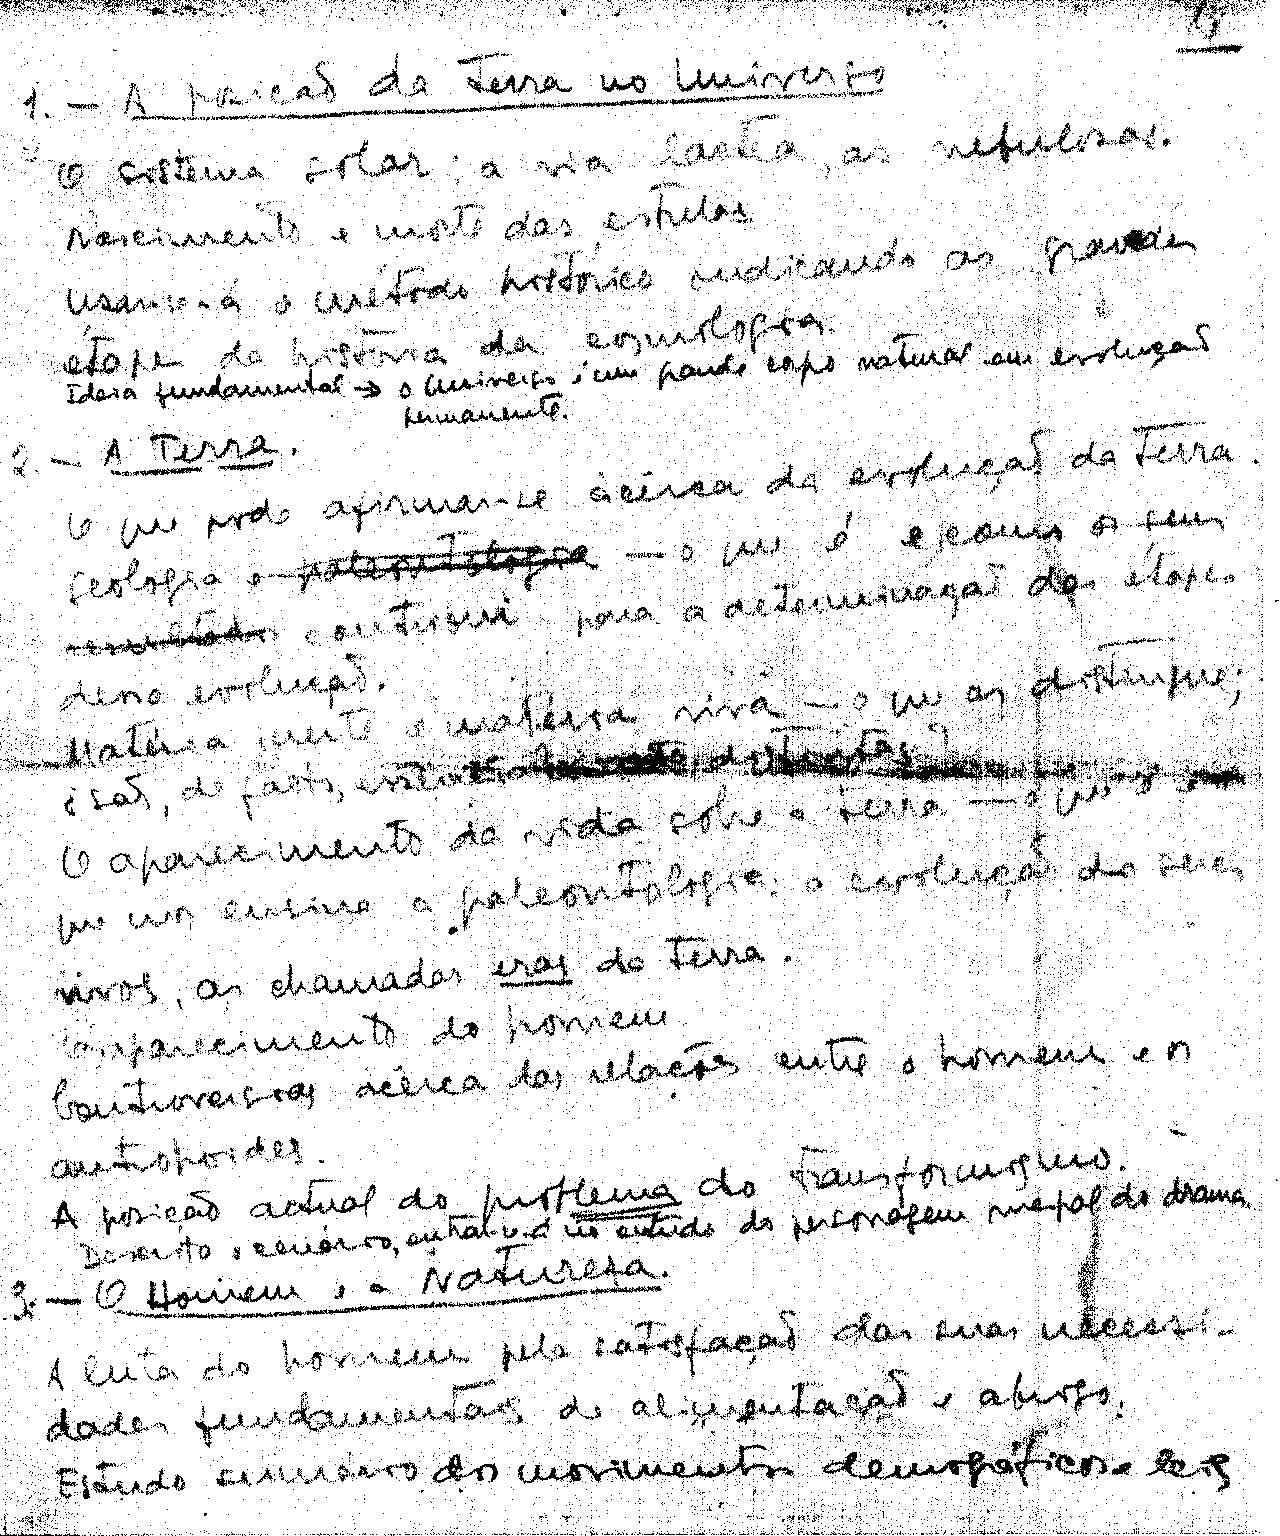 1. — A posição da Terra no Universo
O sistema solar; a via láctea, as nebulosas.
Nascimento e morte das estrelas
Usar-se-á o método histórico indicando as grandes
étapes da história da cosmologia.
Ideia fundamental → o Universo é um grande corpo natural em evolução
permanente.
2. — A Terra.
O que pode afirmar-se àcêrca da evolução da Terra.
Geologia e paleontologia — o que é e como os seus
resultados contribui para a determinação das étapes
dessa evolução.
Matéria inerte e matéria viva — o que as distingue;
são, de facto, distintas?
O aparecimento da vida sobre a terra — o que
que nos ensina a paleontologia: a evolução dos seres
vivos, as chamadas eras da Terra.
O aparecimento do homem
Controversias àcêrca das relações entre o homem e os
antropoides.
A posição actual do problema do transformismo.
Descrito o cenário, entrar-se-á no estudo do personagem principal do drama
3. — O Homem e a Natureza.
A luta do homem pela satisfação das suas necessi-
dades fundamentais de alimentação e abrigo.
Estudo sumário dos movimentos demográficos e leis